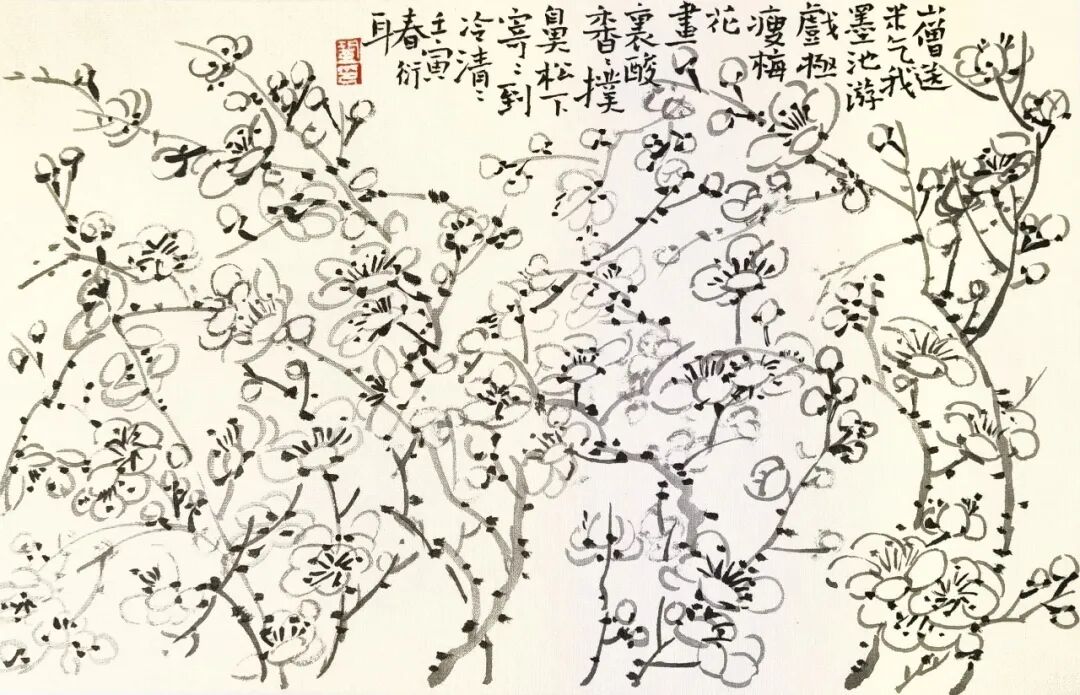 山僧送
米乞我
墨池游
戲極
瘦梅
花
畫
裏酸
香〻撲
鼻松下
寄〻到
冷清〻
壬寅
春衍
耳